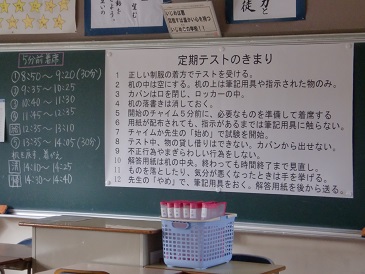 いじめは絶
5分前着席
① 8:50 ~ 9:20 (30分)
② 9:35 ~ 10:25
③ 10:40 ~ 11:30
④ 11:45 ~
⑤ 12:35 ~ 13:10
⑥ 13:35 ~ 14:05 (30分)
清 14:10 ~ 14:25
終 14:30 ~ 14:40
定期テストのきまり
1 正しい制服の着方でテストを受ける。
2 机の中は空にする。机の上は筆記用具や指示された物のみ。
3 カバンは口を閉じ、ロッカーの中。
4 机の落書きは消しておく。
5 開始のチャイム5分前に、必要なものを準備して着席する
6 用紙が配布されても、指示があるまでは筆記用具に触らない。
7 チャイムか先生の「始め」で試験を開始。
8 テスト中、物の貸し借りはできない。カバンから出せない。
9 不正行為やまぎらわしい行為をしない。
10 解答用紙は机の中央。終わっても時間終了まで見直し。
11 ものを落としたり、気分が悪くなったときは手を挙げる。
12 先生の「やめ」で、筆記用具をおく。解答用紙を後から送る。